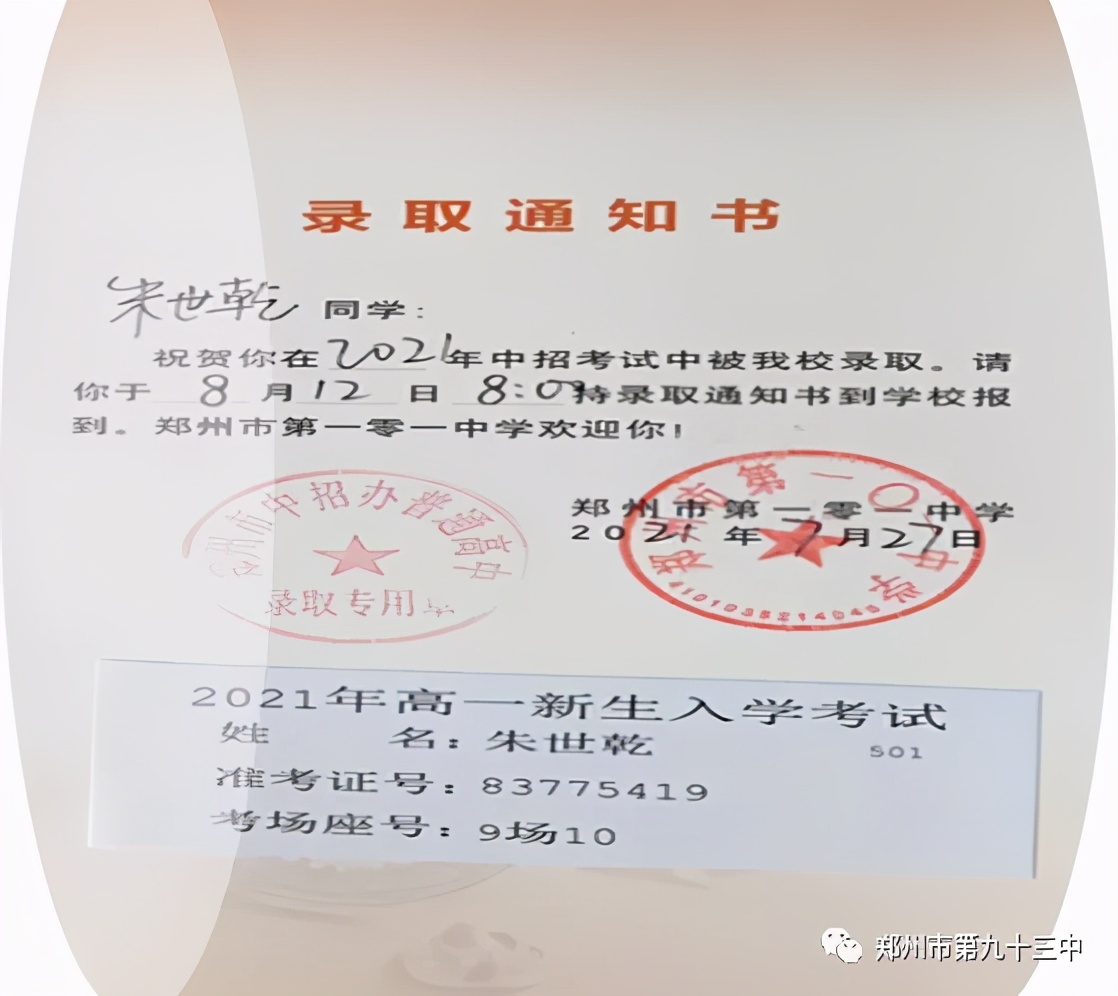 录取通知书
朱世乾 同学：
祝贺你在2021年中招考试中被我校录取。请
你于 8 月 12 日 8:00持录取通知书到学校报
到。郑州市第一零一中学欢迎你！
郑州市中招办普通高中
录取专用章
郑州市第一〇一中学
郑州市第一零一中学
2021 年 7 月 27 日
2021年高一新生入学考试
姓 名：朱世乾 S01
准考证号：83775419
考场座号：9场10
郑州市第九十三中